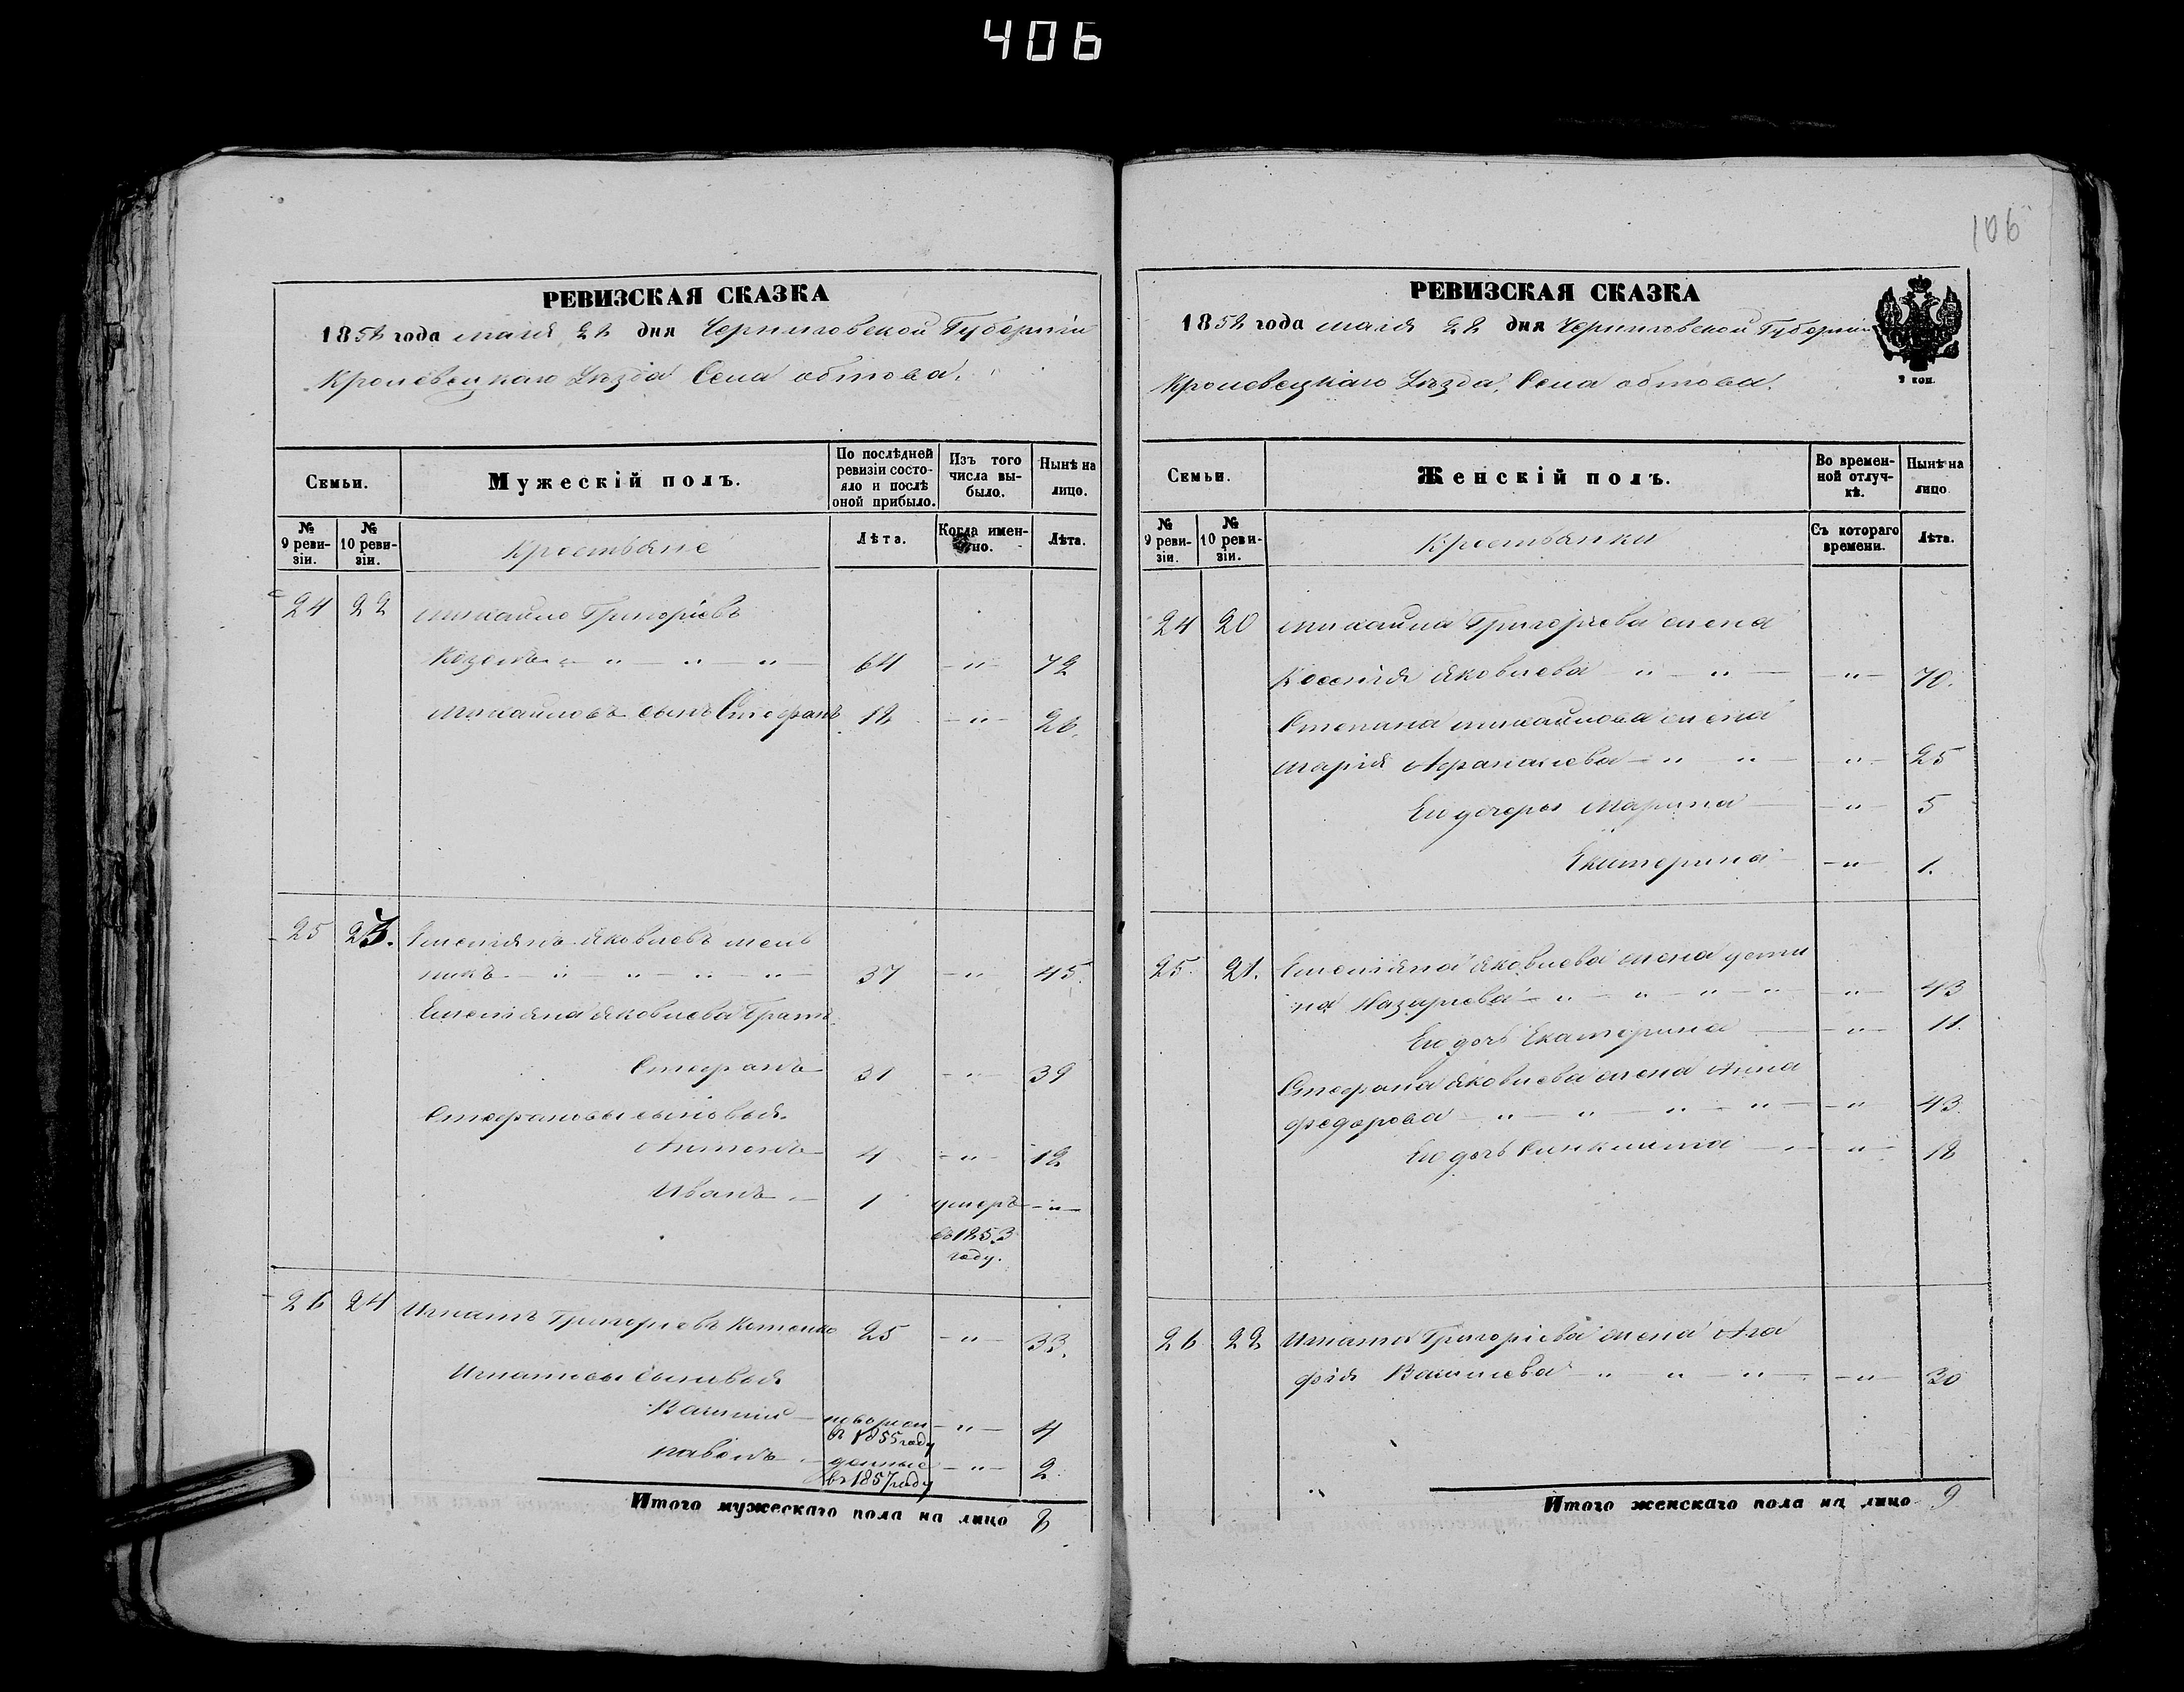 406
106
РЕВИЗСКАЯ СКАЗКА
1858 года маія 22 дня Черниговской Губерніи
Кролевецкаго Уѣзда Села обтова.
Семьи.
Мужескій полъ.
По послѣдней ревизіи состояло и послѣ оной прибыло.
Изъ того числа выбыло.
Нынѣ на лицо.
№ 9 ревизіи.
№ 10 ревизіи.
Крестьяне
Лѣта.
Когда именно.
Лѣта.
24 22 михайло Григоріевъ
Козелъ — " — " — " — 64 — " — 72
михайловъ сынъ Стефанъ 18 — " — 26.
25 23. Емельянъ яковлевъ мель
никъ — " — " — " — " — 37 — " — 45.
Емельяна яковлева Братъ
Стефанъ 31 — " — 39
Стефановы сыновья
Антонъ 4 — " — 12
Иванъ — 1 умеръ — " —
въ 1853
году.
26 24 Игнатъ Григорьевъ Котенко 25 — " — 33.
Игнатовы сыновья
Василій — новорож — " — 4
въ 1855 году
павелъ — денные — " — 2
въ 1857 году
Итого мужескаго пола на лицо 8
РЕВИЗСКАЯ СКАЗКА
1858 года маія 22 дня Черниговской Губерніи
Кролевецкаго Уѣзда, Села обтова.
2 коп.
Семьи.
Женскій полъ.
Во временной отлучкѣ.
Нынѣ на лицо
№ 9 ревизіи.
№ 10 ревизіи.
Крестьянки
Съ котораго времени.
Лѣта.
24 20 михайла Григорьева жена
Ксенія яковлева — " — " — — " — 70.
Степана михайлова жена
марія Афанасіева — " — " — " — 25
Ею дочеры Марина — — " — 5
Екатерина — " — 1.
25. 21. Емельяна яковлева жена усти
на Назарьева — " — " — " — " — " — 43
Ею дочь Екатерина — — " — 11.
Стефана яковлева жена Анна
федорова — " — " — " — " — — " 43.
Ею дочь — " — 18
26 22 Игната Григоріева жена Ага
фія Василіева — " — " — " — — " — 30
Итого женскаго пола на лицо 9